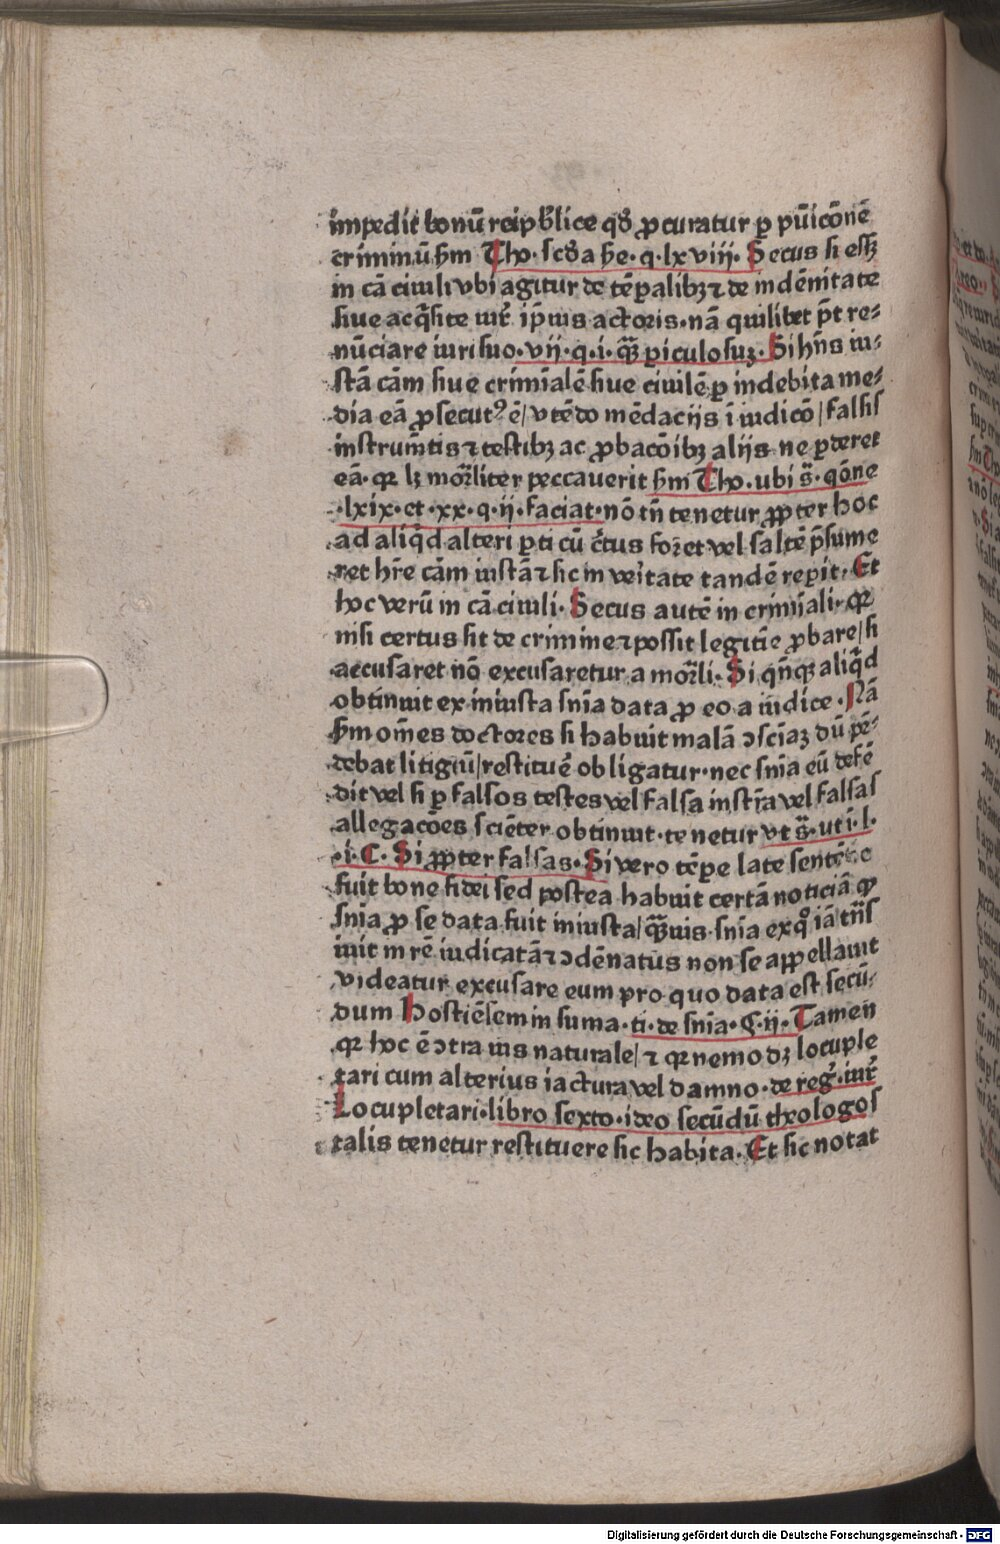 impedit bonū reip̄blice qd̄ ꝓcuratur ꝑ pūicōnē
criminū ẜm Tho. scd̄a ẜe. q. lxviii. Secus si eſſꝫ
in cā ciuili vbi agitur de tēꝑalibꝫ ⁊ de indēnitate
ſiue acq̄ſite iur̄ ip̄ius actoris. nā quilibet pt̄ re⸗
nūciare iuri ſuo. vii. q. i. qꝫ̄ ꝑiculoſuꝫ. Si hn̄s iu⸗
ſtā cām ſiue crimīalē ſiue ciuilē ꝑ indebita me⸗
dia eā ꝓſecutꝰ ē / vtēdo mēdacijs ī iudicō / falſis
inſtrum̄tis ⁊ teſtibꝫ ac ꝓbacōibꝫ alijs ne ꝑderet
eā. qꝛ lꝫ mor̄liter peccauerit ẜm Tho. ubi s̄. qōne
lxix. et. xx. q. ii. faciat. nō tn̄ tenetur ꝓpter hoc
ad aliq̄d alteri ꝑti cū c̄tus foret vel ſaltē p̄ſume
ret hr̄e cām iuſtā ⁊ ſic in veritate tandē reꝑit. Et
hoc verū in cā ciuili. Secus autē in crimīali. qꝛ
niſi certus ſit de crimine ⁊ poſſit legitīe ꝓbare / ſi
accuſaret nō excuſaretur a mor̄li. Si qn̄qꝫ aliq̄d
obtinuit ex iniuſta ſnīa data ꝓ eo a iudice. Nā
ẜm om̄es doctores ſi habuit malā ↄſciāꝫ dū pē⸗
debat litigiū / reſtituē obligatur. nec ſnīa eū defē
dit vel ſi ꝑ falſos teſtes vel falſa inſtr̄a vel falſas
allegacōes ſciēter obtinuit. tenetur vt s̄. ut i. l.
i. C. Si ꝓpter falſas. Si vero tēꝑe late ſentē
fuit bone fidei ſed poſtea habuit certā noticiā ꝙ
ſnīa ꝓ ſe data fuit iniuſta / qꝫ̄uis ſnīa exqͦ iā tn̄ſ
iuit in rē iudicatā ⁊ ↄdēnatus non ſe aꝓpellauit
videatur excuſare eum pro quo data eſt ſecū⸗
dum Hoſtiēſem in ſuma. ti. de ſnīa. C. ii. Tamen
qꝛ hoc ē ↄtra ius naturale / ⁊ qꝛ nemo dꝫ locuple
tari cum alterius iactura vel damno. de reḡ. iur̄
Locupletari. libro ſexto. ideo ſecūdū theologos
talis tenetur reſtituere ſic habita. Et ſic notat
Digitalisierung gefördert durch die Deutsche Forschungsgemeinschaft - DFG